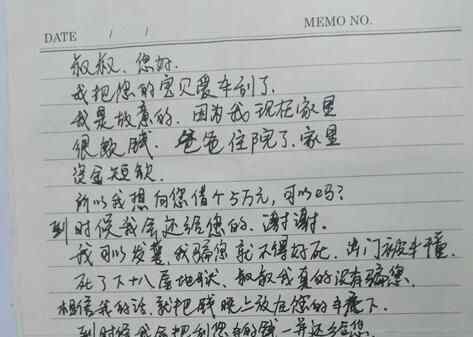 DATE / /
MEMO NO.
叔叔、您好.
我把您的宝贝爱车刮了.
我是故意的. 因为我现在家里
很缺钱. 爸爸住院了. 家里
资金短缺.
所以我想向您借个5万元, 可以吗?
到时候我会还给您的. 谢谢.
我可以发誓, 我骗您就不得好死. 出门被车撞.
死了下十八层地狱. 叔叔我真的没有骗您.
相信我的话. 就把钱晚上放在您的车底下.
到时候我会把刮车的钱一并还给您.